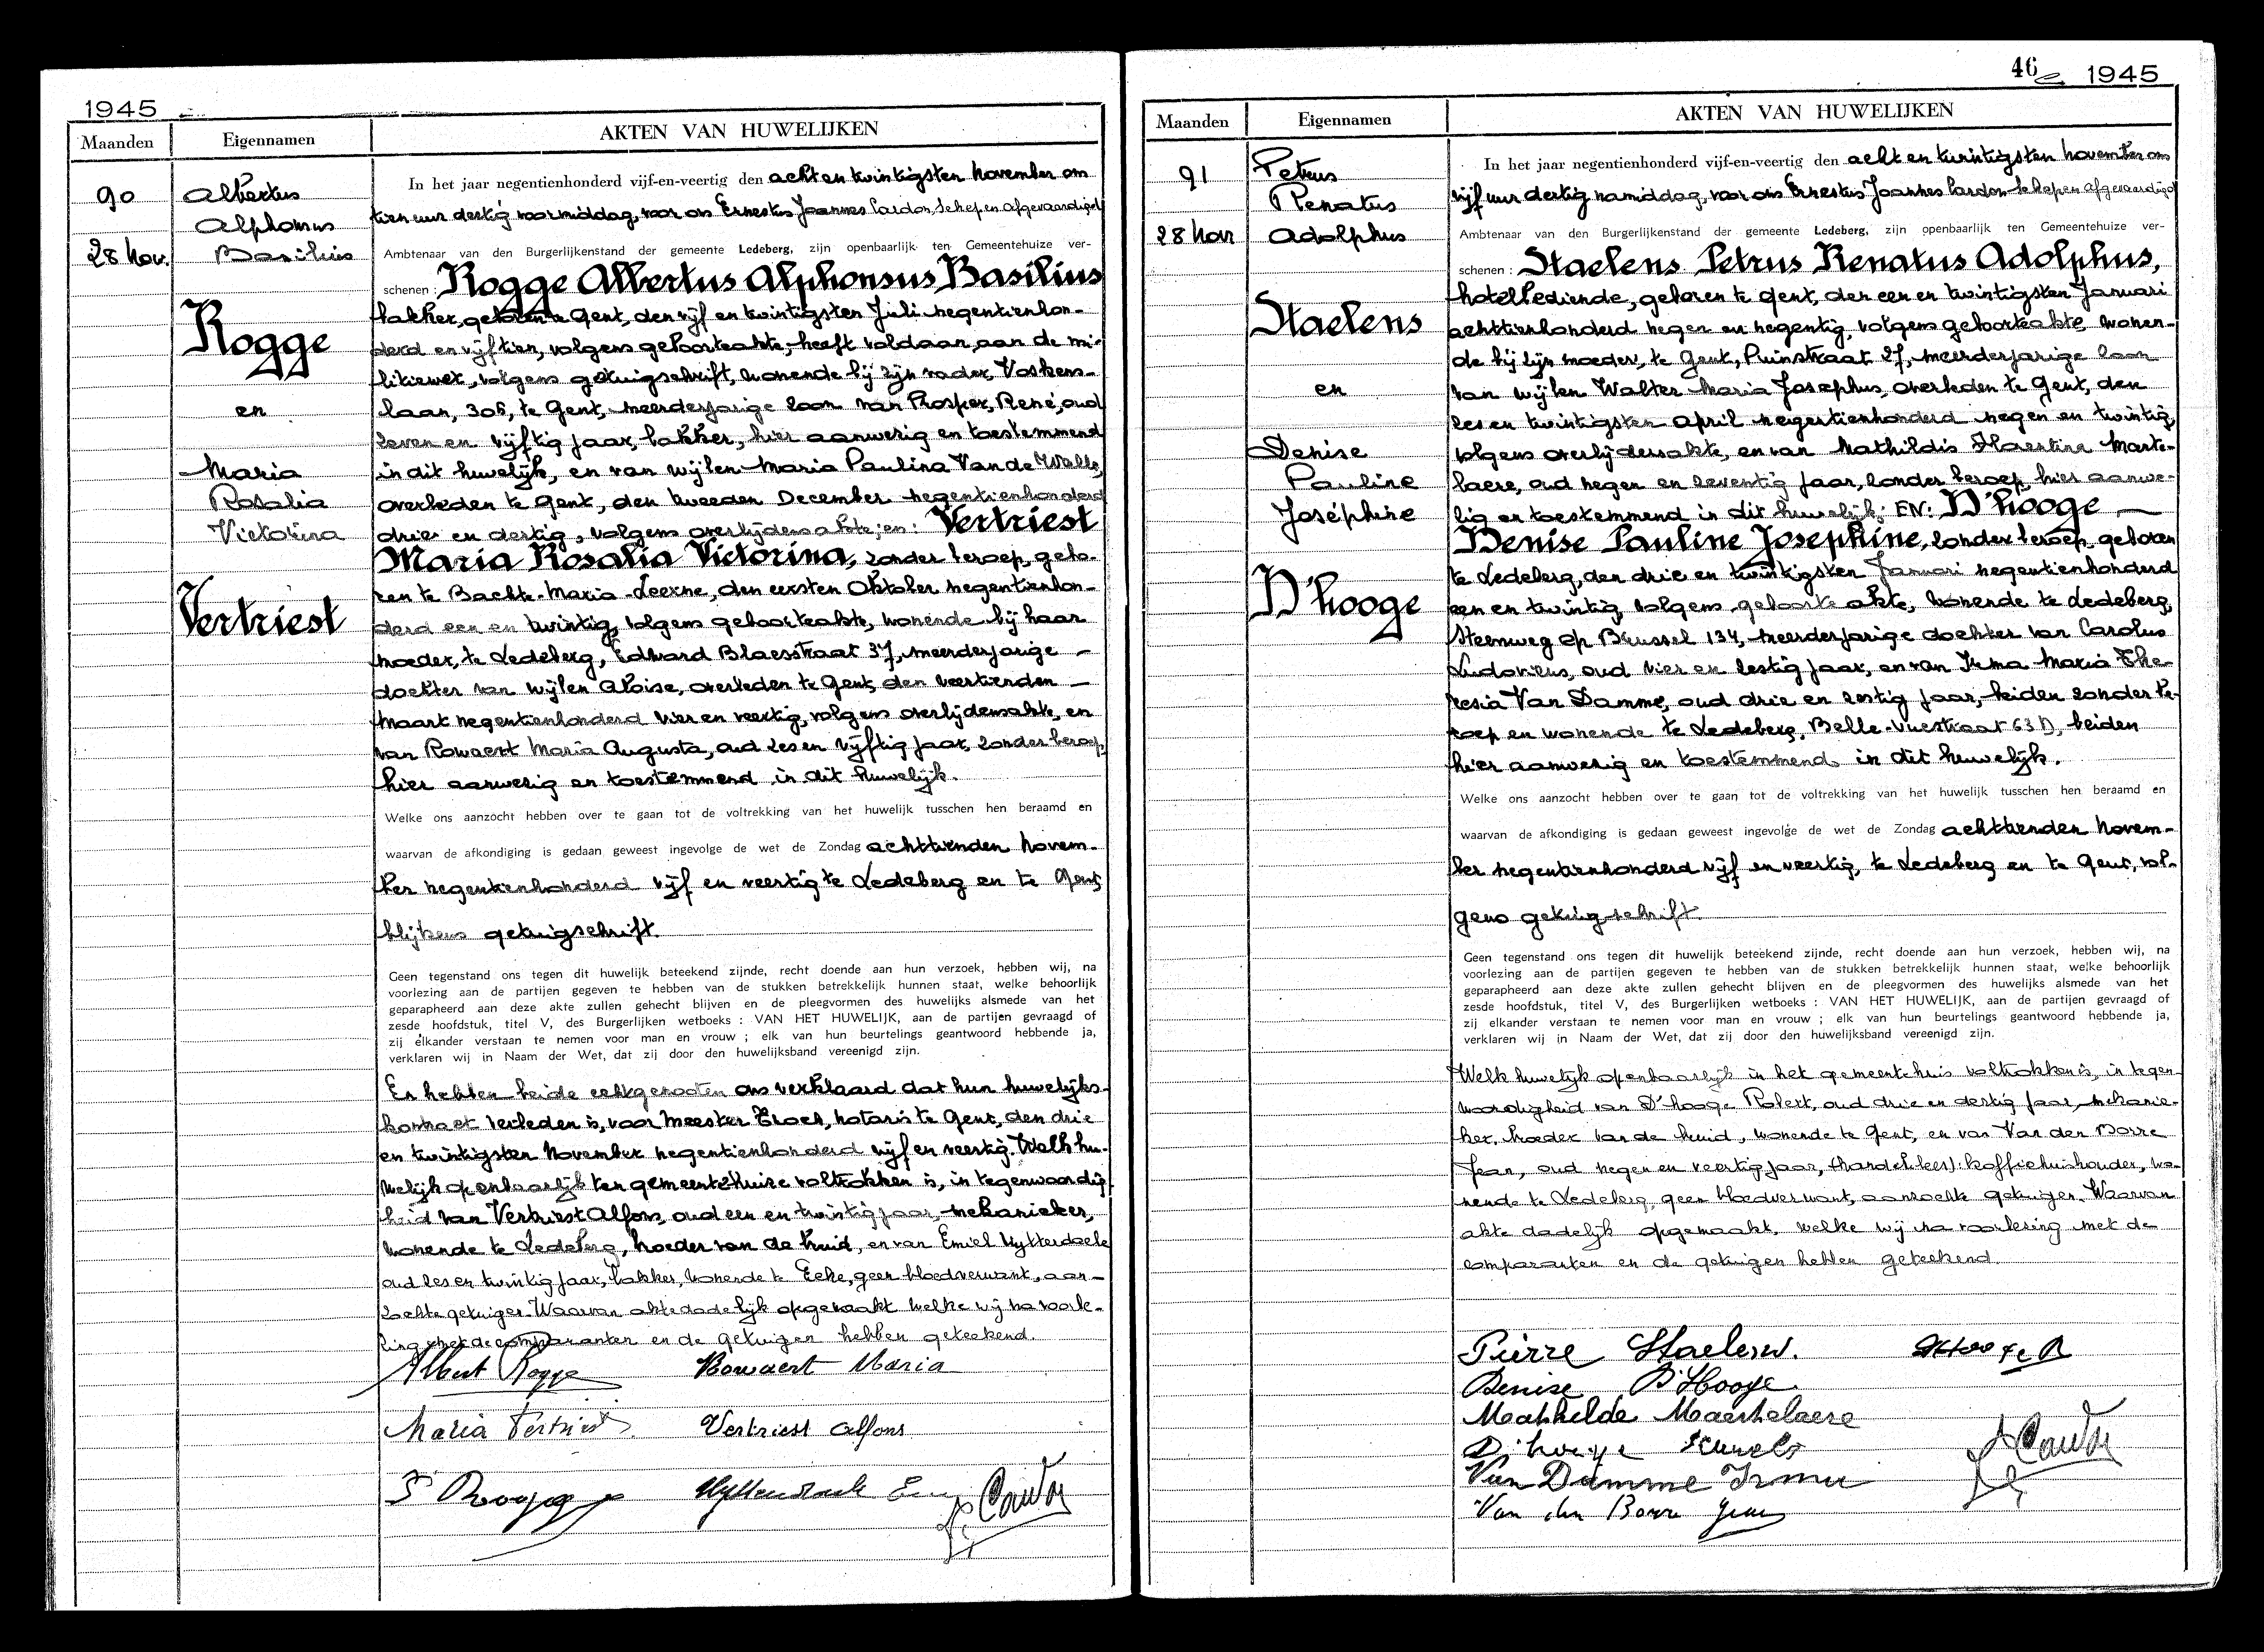 1945
Maanden
Eigennamen
AKTEN VAN HUWELIJKEN
90
28 Nov.
Albertus
Alphonsus
Basilius
Rogge
en
Maria
Rosalia
Victorina
Vertriest
In het jaar negentienhonderd vijf-en-veertig den acht en twintigsten November om
tien uur dertig voormiddag, voor ons Ernestus Joannes Cardon, Schepen Afgevaardigd
Ambtenaar van den Burgerlijkenstand der gemeente Ledeberg, zijn openbaarlijk ten Gemeentehuize ver-
schenen : Rogge Albertus Alphonsus Basilius
bakker, geboren te Gent, den vijf en twintigsten Juli negentienhon-
derd en vijftien, volgens geboorteakte, heeft voldaan aan de mi-
litiewet, volgens getuigschrift, wonende bij zijn vader, Voskens-
laan, 305, te Gent, meerderjarige zoon van Prosper, René, oud
zeven en vijftig jaar, bakker, hier aanwezig en toestemmend
in dit huwelijk, en van wijlen Maria Paulina Van de Walle,
overleden te Gent, den tweeden December negentienhonderd
drie en dertig, volgens overlijdensakte; en: Vertriest
Maria Rosalia Victorina, zonder beroep, gebo-
ren te Bachte-Maria-Leerne, den eersten Oktober negentienhon-
derd een en twintig, volgens geboorteakte, wonende bij haar
moeder, te Ledeberg, Edward Blaesstraat 37, meerderjarige -
dochter van wijlen Aloise, overleden te Gent, den veertienden -
Maart negentienhonderd vier en veertig, volgens overlijdensakte, en
van Rowaert Maria Augusta, oud zes en vijftig jaar, zonder beroep,
hier aanwezig en toestemmend in dit huwelijk.
Welke ons aanzocht hebben over te gaan tot de voltrekking van het huwelijk tusschen hen beraamd en
waarvan de afkondiging is gedaan geweest ingevolge de wet de Zondag achttienden Novem-
ber negentienhonderd vijf en veertig te Ledeberg en te Gent,
blijkens getuigschrift.
Geen tegenstand ons tegen dit huwelijk beteekend zijnde, recht doende aan hun verzoek, hebben wij, na
voorlezing aan de partijen gegeven te hebben van de stukken betrekkelijk hunnen staat, welke behoorlijk
geparapheerd aan deze akte zullen gehecht blijven en de pleegvormen des huwelijks alsmede van het
zesde hoofdstuk, titel V, des Burgerlijken wetboeks : VAN HET HUWELIJK, aan de partijen gevraagd of
zij elkander verstaan te nemen voor man en vrouw ; elk van hun beurtelings geantwoord hebbende ja,
verklaren wij in Naam der Wet, dat zij door den huwelijksband vereenigd zijn.
En hebben beide echtgenooten ons verklaard dat hun huwelijks-
kontract verleden is, voor Meester, notaris te Gent, den drie
en twintigsten November negentienhonderd vijf en veertig. Welk hu-
welijk openbaarlijk ten gemeentehuize voltrokken is, in tegenwoordig-
heid van Vertriest Alfons, oud een en twintig jaar, mekanieker,
wonende te Ledeberg, broeder van de bruid, en van Emiel Uytterdaele
oud zes en twintig jaar, bakker, wonende te Eeke, geen bloedverwant, aan-
zochte getuigen. Waarvan akte dadelijk opgemaakt welke wij na voorle-
zing met de comparanten en de getuigen hebben geteekend.
Albert Rogge Rowaert Maria
Maria Vertriest Vertriest Alfons
P Rogge
46
1945
Maanden
Eigennamen
AKTEN VAN HUWELIJKEN
91
28 Nov
Petrus
Renatus
Adolphus
Staelens
en
Denise
Pauline
Joséphine
D'hooge
In het jaar negentienhonderd vijf-en-veertig den acht en twintigsten November om
vijf uur dertig namiddag, voor ons Ernestus Joannes Cardon Schepen afgevaardigd
Ambtenaar van den Burgerlijkenstand der gemeente Ledeberg, zijn openbaarlijk ten Gemeentehuize ver-
schenen : Staelens Petrus Renatus Adolphus,
hotelbediende, geboren te Gent, den een en twintigsten Januari
achttienhonderd negen en negentig, volgens geboorteakte, wonen-
de bij zijn moeder, te Gent, Puinstraat 27, meerderjarige zoon
van wijlen Walter Maria Josephus, overleden te Gent, den
zes en twintigsten April negentienhonderd negen en twintig,
volgens overlijdensakte, en van Mathildis Florentina Marte-
laere, oud negen en zeventig jaar, zonder beroep, hier aanwe-
zig en toestemmend in dit huwelijk; EN: D'hooge -
Denise Pauline Josephine, zonder beroep, geboren
te Ledeberg, den drie en twintigsten Januari negentienhonderd
een en twintig volgens geboorte akte, wonende te Ledeberg,
Steenweg op Brussel 134, meerderjarige dochter van Carolus
Ludovicus, oud vier en zestig jaar, en van Irma Maria The-
resia Van Damme, oud drie en zestig jaar, beiden zonder be-
roep en wonende te Ledeberg, Belle-Vuestraat 63 D, beiden
hier aanwezig en toestemmend in dit huwelijk.
Welke ons aanzocht hebben over te gaan tot de voltrekking van het huwelijk tusschen hen beraamd en
waarvan de afkondiging is gedaan geweest ingevolge de wet de Zondag achttienden Novem-
ber negentienhonderd vijf en veertig, te Ledeberg en te Gent, vol-
gens getuigschrift.
Geen tegenstand ons tegen dit huwelijk beteekend zijnde, recht doende aan hun verzoek, hebben wij, na
voorlezing aan de partijen gegeven te hebben van de stukken betrekkelijk hunnen staat, welke behoorlijk
geparapheerd aan deze akte zullen gehecht blijven en de pleegvormen des huwelijks alsmede van het
zesde hoofdstuk, titel V, des Burgerlijken wetboeks : VAN HET HUWELIJK, aan de partijen gevraagd of
zij elkander verstaan te nemen voor man en vrouw ; elk van hun beurtelings geantwoord hebbende ja,
verklaren wij in Naam der Wet, dat zij door den huwelijksband vereenigd zijn.
Welk huwelijk openbaarlijk in het gemeentehuis voltrokken is, in tegen-
woordigheid van D'hooge Robert, oud drie en dertig jaar, mekanie-
ker, broeder van de bruid, wonende te Gent, en van Van den Borre
Jean, oud negen en veertig jaar, koffiehuishouder, wo-
nende te Ledeberg, geen bloedverwant, aanzochte getuigen. Waarvan
akte dadelijk opgemaakt, welke wij na voorlezing met de
comparanten en de getuigen hebben geteekend.
Pierre Staelens.
Denise D'Hooge
Mathilde Maertelaere
D'hooge
Van Damme Irma
Van den Borre Jean